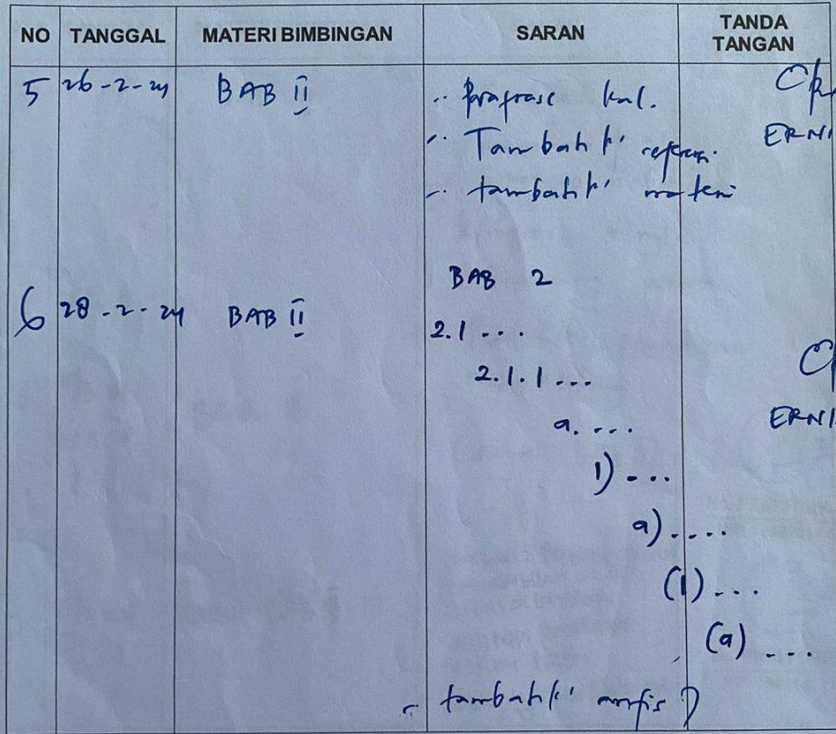 NO TANGGAL MATERI BIMBINGAN SARAN TANDA TANGAN
5 26-2-24 BAB II - Prafrase kal.
ERNI
- Tambahk' referensi
- tambahk' materi
6 28-2-24 BAB II
BAB 2
2.1 ...
2.1.1 ...
a. ...
ERNI
1) ...
a) ....
(1) ...
(a) ...
- tambahk'